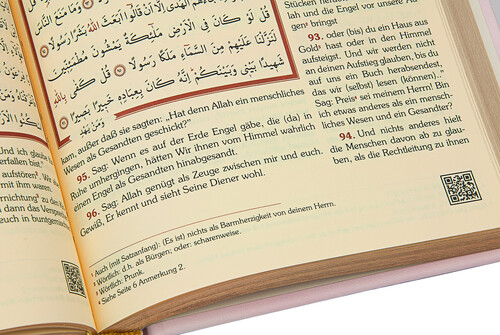 إِلَّا أَن قَالُوا أَبَعَثَ اللَّهُ بَشَرًا رَّسُولًا
قُل لَّوْ كَانَ فِي الْأَرْضِ مَلَٰئِكَةٌ يَمْشُونَ مُطْمَئِنِّينَ
لَنَزَّلْنَا عَلَيْهِم مِّنَ السَّمَاءِ مَلَكًا رَّسُولًا قُلْ كَفَىٰ بِاللَّهِ
شَهِيدًا بَيْنِي وَبَيْنَكُمْ إِنَّهُ كَانَ بِعِبَادِهِ خَبِيرًا بَصِيرًا
lah und die Engel vor unsere Au-
gen² bringst.
93. oder (bis) du ein Haus aus
Gold³ hast oder in den Himmel
aufsteigst. Und wir werden nicht
an deinen Aufstieg glauben, bis du
auf uns ein Buch herabsendest,
das wir (selbst) lesen (können).“⁴
Sag: Preis! sei meinem Herrn! Bin
ich etwas anderes als ein mensch-
liches Wesen und ein Gesandter?
94. Und nichts anderes hielt
die Menschen davon ab zu glau-
ben, als die Rechtleitung zu ihnen
kam, außer daß sie sagten: „Hat denn Allah ein menschliches
Wesen als Gesandten geschickt?“
95. Sag: Wenn es auf der Erde Engel gäbe, die (da) in
Ruhe umhergingen, hätten Wir ihnen vom Himmel wahrlich
einen Engel als Gesandten hinabgesandt.
96. Sag: Allah genügt als Zeuge zwischen mir und euch.
Gewiß, Er kennt und sieht Seine Diener wohl.
1 Auch (mit Satzanfang): (Es ist) nichts als Barmherzigkeit von deinem Herrn.
2 Wörtlich: d.h. als Bürgen; oder: scharenweise.
3 Wörtlich: Prunk.
4 Siehe Seite 6 Anmerkung 2.